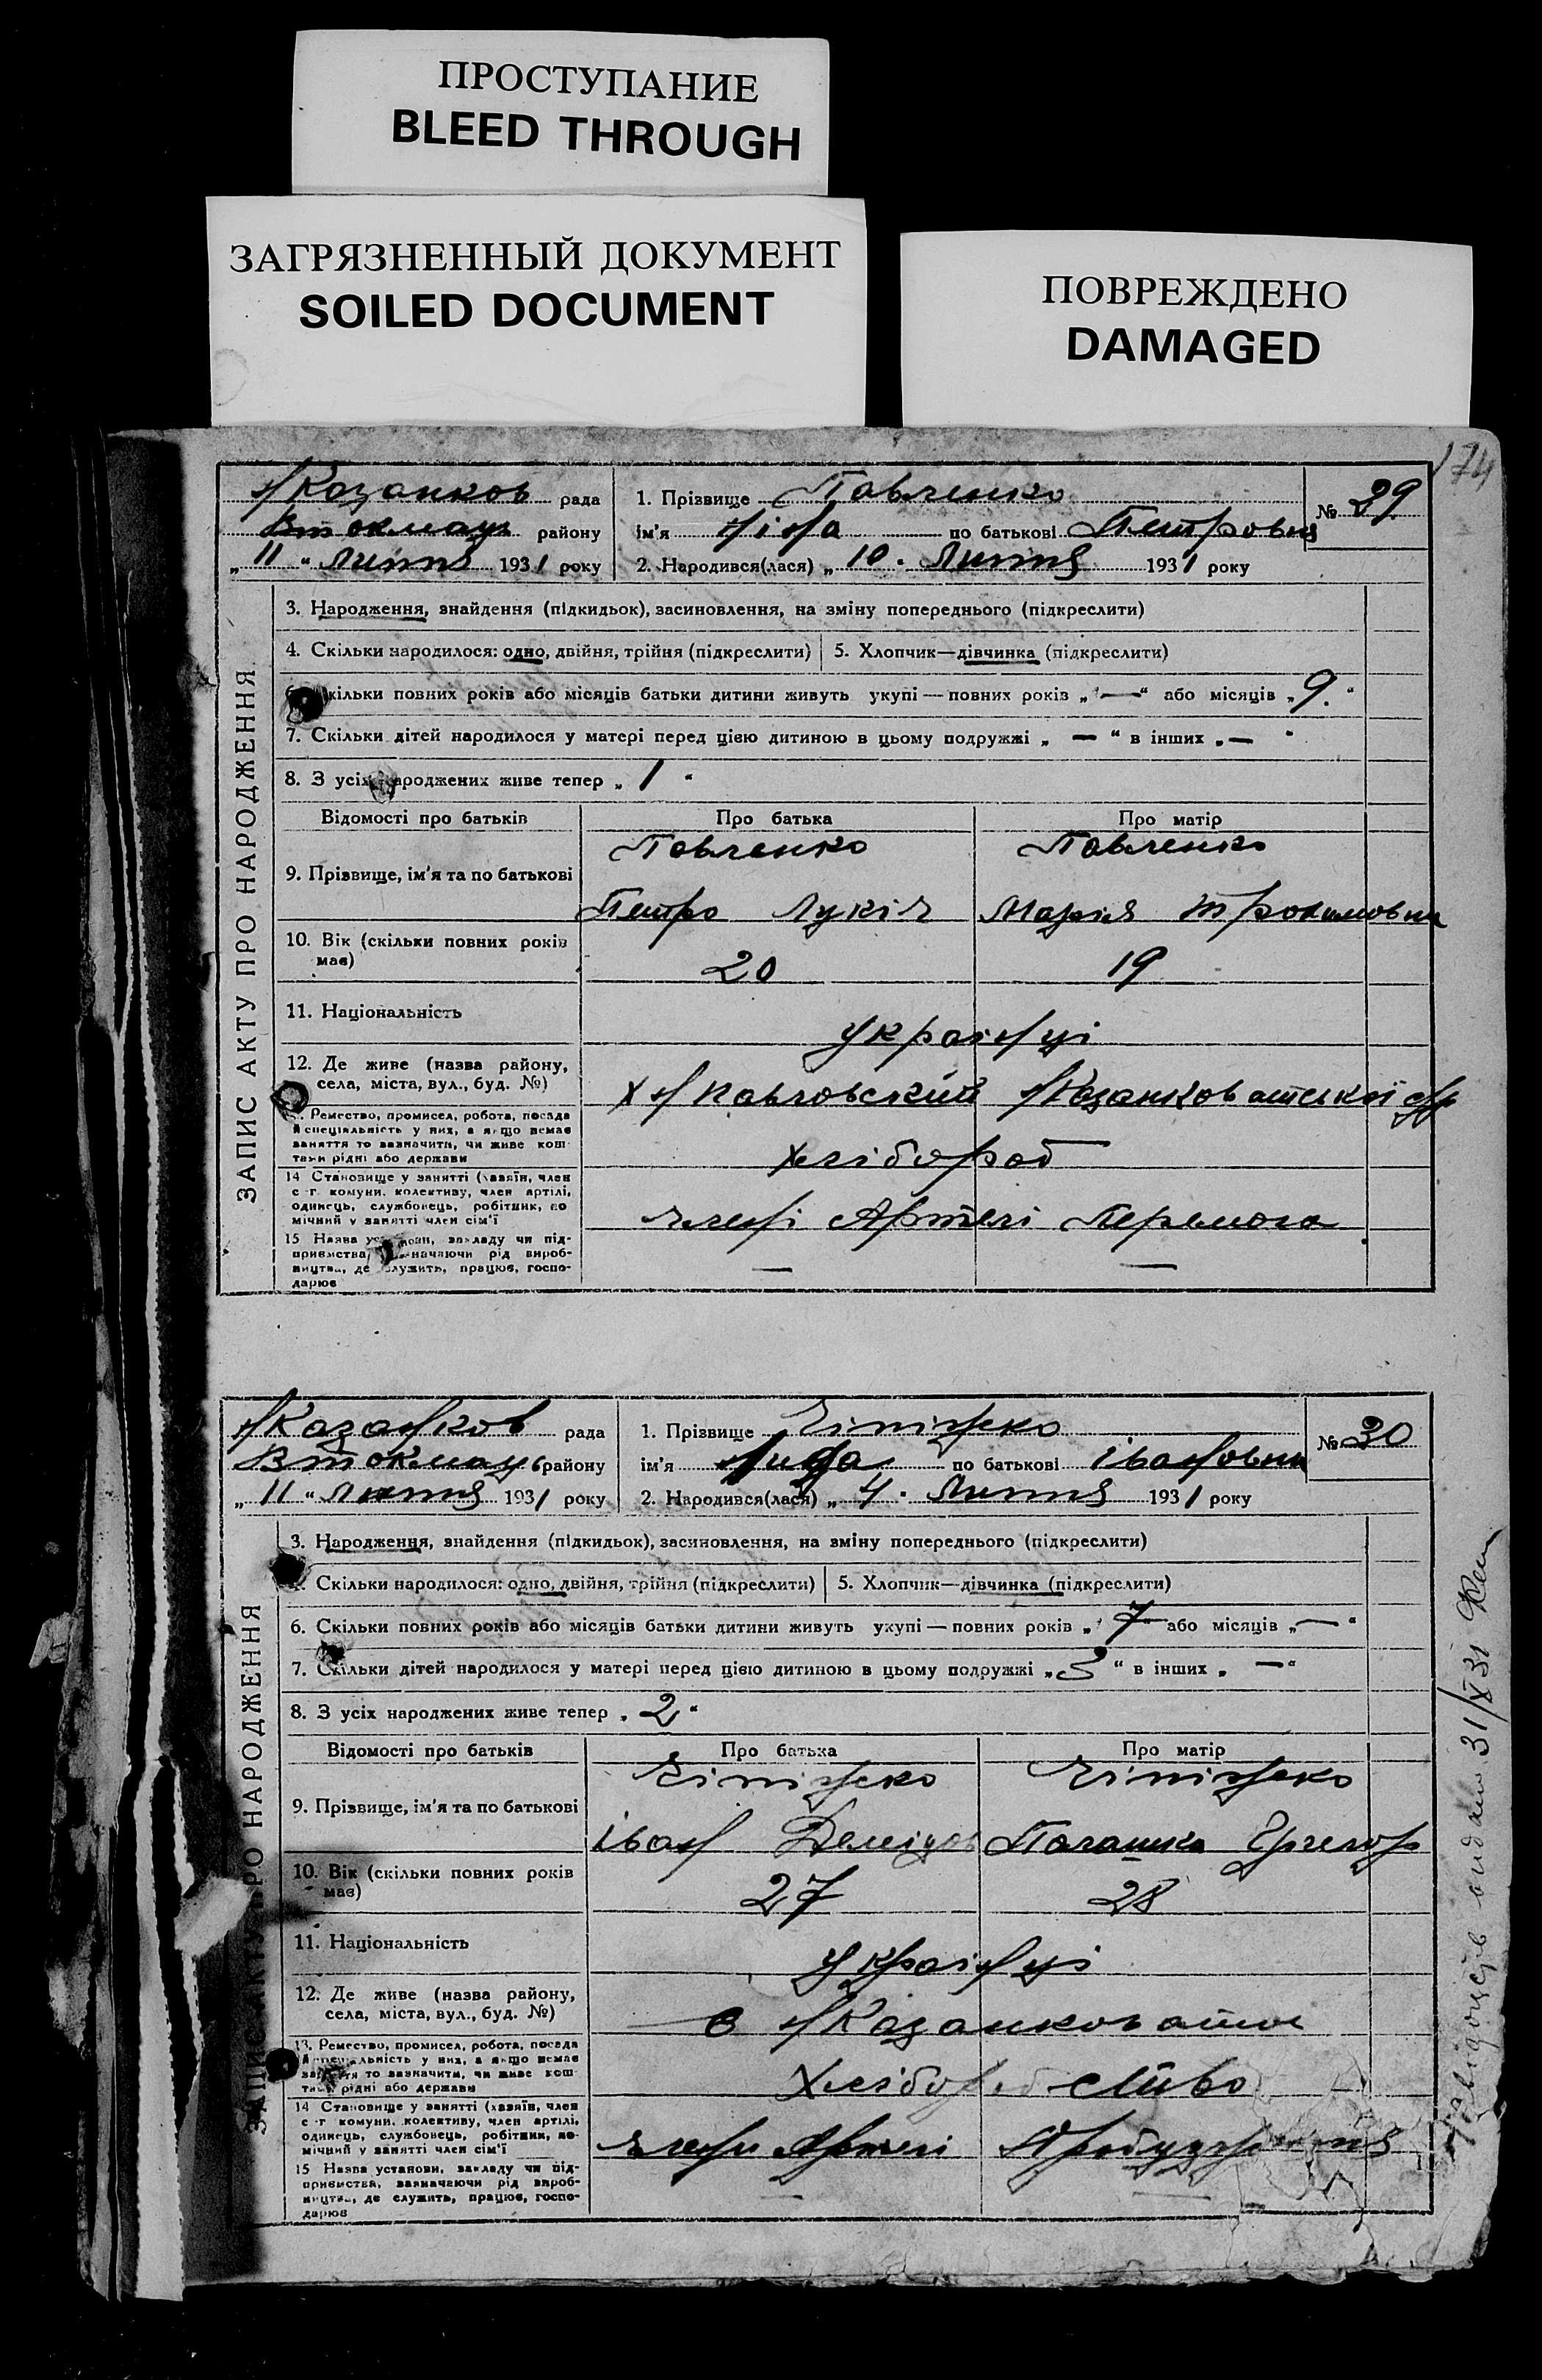 ПРОСТУПАНИЕ
BLEED THROUGH
ЗАГРЯЗНЕННЫЙ ДОКУМЕНТ
SOILED DOCUMENT
ПОВРЕЖДЕНО
DAMAGED
174
ЗАПИС АКТУ ПРО НАРОДЖЕННЯ
Казанков рада
В токмац району
„ 11 " Липня 1931 року
1. Прізвище Павленко
ім'я Ніна по батькові Петровна
2. Народився(лася) „ 10 . Липня 1931 року
№ 29
3. Народження, знайдення (підкидьок), засиновлення, на зміну попереднього (підкреслити)
4. Скільки народилося: одно, двійня, трійня (підкреслити) 5. Хлопчик—дівчинка (підкреслити)
кільки повних років або місяців батьки дитини живуть укупі — повних років „ — " або місяців „ 9. "
7. Скільки дітей народилося у матері перед цією дитиною в цьому подружжі „ — " в інших „ — "
8. З усіх народжених живе тепер „ 1 "
Відомості про батьків Про батька Про матір
9. Прізвище, ім'я та по батькові
Павленко Павленко
Петро Лукіч Марія
10. Вік (скільки повних років має)
20 19
11. Національність
Українці
12. Де живе (назва району,
села, міста, вул., буд. №)
Ремество, промисел, робота, посада
й спеціяльність у них, а якщо немає
заняття то зазначити, чи живе кош
тами рідні або держави
Хлібороб
14 Становище у занятті (хазяїн, член
с-г комуни, колективу, член артілі,
одинець, службовець, робітник, по
мічний у занятті член сім'ї
члени Артелі Перемога
15 Назва установи, закладу чи під-
приємства, зазначаючи рід вироб-
ництва, де служить, працює, госпо-
дарює
— —
ЗАПИС АКТУ ПРО НАРОДЖЕННЯ
Казанков рада
В токмац району
„ 11 " Липня 1931 року
1. Прізвище
ім'я Лида по батькові Івановна
2. Народився(лася) „ 4 . Липня 1931 року
№ 30
3. Народження, знайдення (підкидьок), засиновлення, на зміну попереднього (підкреслити)
Скільки народилося: одно, двійня, трійня (підкреслити) 5. Хлопчик—дівчинка (підкреслити)
6. Скільки повних років або місяців батьки дитини живуть укупі — повних років „ 7 " або місяців „ — "
7. Скільки дітей народилося у матері перед цією дитиною в цьому подружжі „ 3 " в інших „ — "
8. З усіх народжених живе тепер „ 2 "
Відомості про батьків Про батька Про матір
9. Прізвище, ім'я та по батькові
Іван Палашка Григор
10. Вік (скільки повних років має)
27 28
11. Національність
Українці
12. Де живе (назва району,
села, міста, вул., буд. №)
13. Ремество, промисел, робота, посада
й спеціяльність у них, а якщо немає
заняття то зазначити, чи живе кош
тами рідні або держави
Хліборобство
14 Становище у занятті (хазяїн, член
с-г комуни, колективу, член артілі,
одинець, службовець, робітник, по-
мічний у занятті член сім'ї
члени Артелі
15 Назва установи, закладу чи під-
приємства, зазначаючи рід вироб-
ництва, де служить, працює, госпо-
дарює
— —
31/X 31